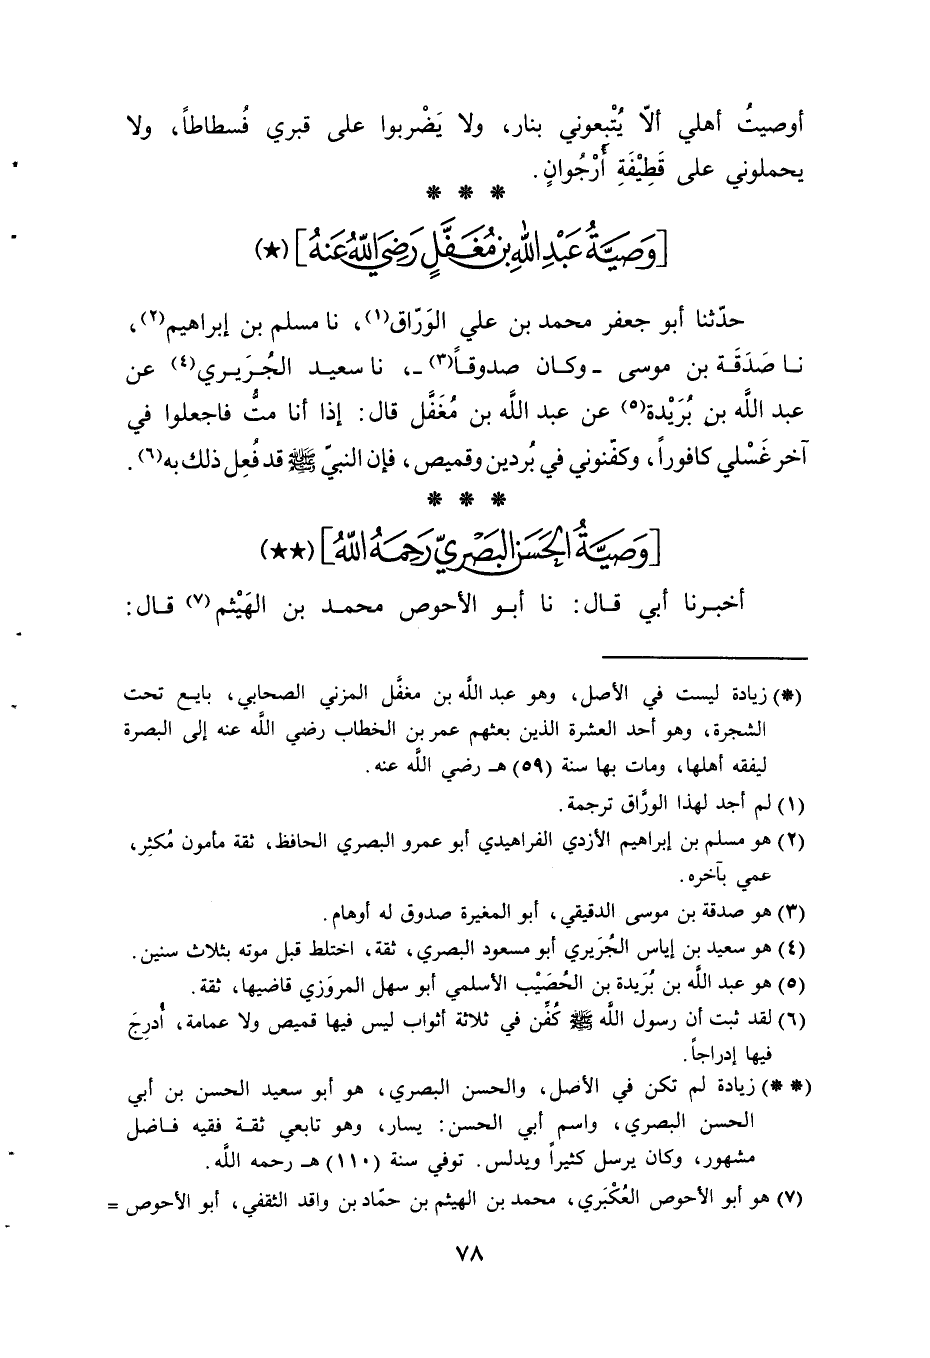 أوصيتُ أهلي ألاّ يُتْبعوني بنار، ولا يَضْربوا على قبري فُسطاطاً، ولا
يحملوني على قَطِيْفَةِ أُرْجُوانٍ.
* * *
[وَصِيَّةُ عَبْدِ اللهِ بنِ مُغَفَّلٍ رَضِيَ اللهُ عَنهُ] (★)
حدّثنا أبو جعفر محمد بن علي الوَرّاق(١)، نا مسلم بن إبراهيم(٢)،
نـا صَدَقَـة بن موسى ـ وكـان صدوقـاً(٣) ـ، نـا سعيـد الجُـرَيـري(٤) عن
عبد اللَّه بن بُرَيْدة(٥) عن عبد اللَّه بن مُغَفَّل قال: إذا أنا متُّ فاجعلوا في
آخر غَسْلي كافوراً، وكفّنوني في بُردين وقميص، فإن النبيّ ﷺ قد فُعِل ذلك به(٦).
* * *
[وَصِيَّةُ الحَسَنِ البَصْرِيّ رَحِمَهُ اللهُ] (★★)
أخبـرنا أبي قـال: نا أبـو الأحوص محمـد بن الهَيْثم(٧) قـال:
(*) زيادة ليست في الأصل، وهو عبد اللَّه بن مغفَّل المزني الصحابي، بايـع تحت
الشجرة، وهو أحد العشرة الذين بعثهم عمر بن الخطاب رضي اللَّه عنه إلى البصرة
ليفقه أهلها، ومات بها سنة (٥٩) هـ رضي اللَّه عنه.
(١) لم أجد لهذا الورَّاق ترجمة.
(٢) هو مسلم بن إبراهيم الأزدي الفراهيدي أبو عمرو البصري الحافظ، ثقة مأمون مُكثِر،
عمي بآخره.
(٣) هو صدقة بن موسى الدقيقي، أبو المغيرة صدوق له أوهام.
(٤) هو سعيد بن إياس الجُرَيري أبو مسعود البصري، ثقة، اختلط قبل موته بثلاث سنين.
(٥) هو عبد اللَّه بن بُرَيدة بن الحُصَيْب الأسلمي أبو سهل المروَزي قاضيها، ثقة.
(٦) لقد ثبت أن رسول اللَّه ﷺ كُفِّن في ثلاثة أثواب ليس فيها قميص ولا عمامة، أُدرِجَ
فيها إدراجاً.
(* *) زيادة لم تكن في الأصل، والحسن البصري، هو أبو سعيد الحسن بن أبي
الحسن البصري، واسم أبي الحسن: يسار، وهو تابعي ثقـة فقيه فـاضل
مشهور، وكان يرسل كثيراً ويدلس. توفي سنة (١١٠) هـ رحمه اللَّه.
(٧) هو أبو الأحوص العُكْبَري، محمد بن الهيثم بن حمّاد بن واقد الثقفي، أبو الأحوص =
٧٨